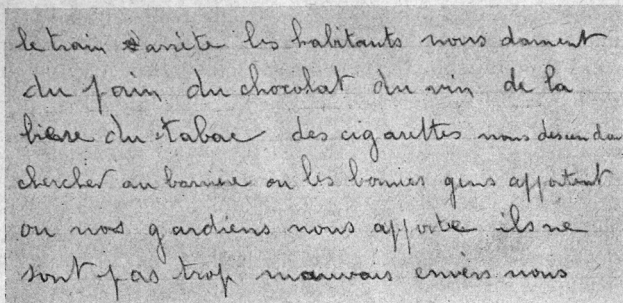 le train s'arrète les habitants nous donnent
du pain du chocolat du vin de la
biere du tabac des cigarettes nous descendo
chercher au barriere ou les bonnes gens apportent
ou nos gardiens nous apporte ils ne
sont pas trop mauvais envers nous